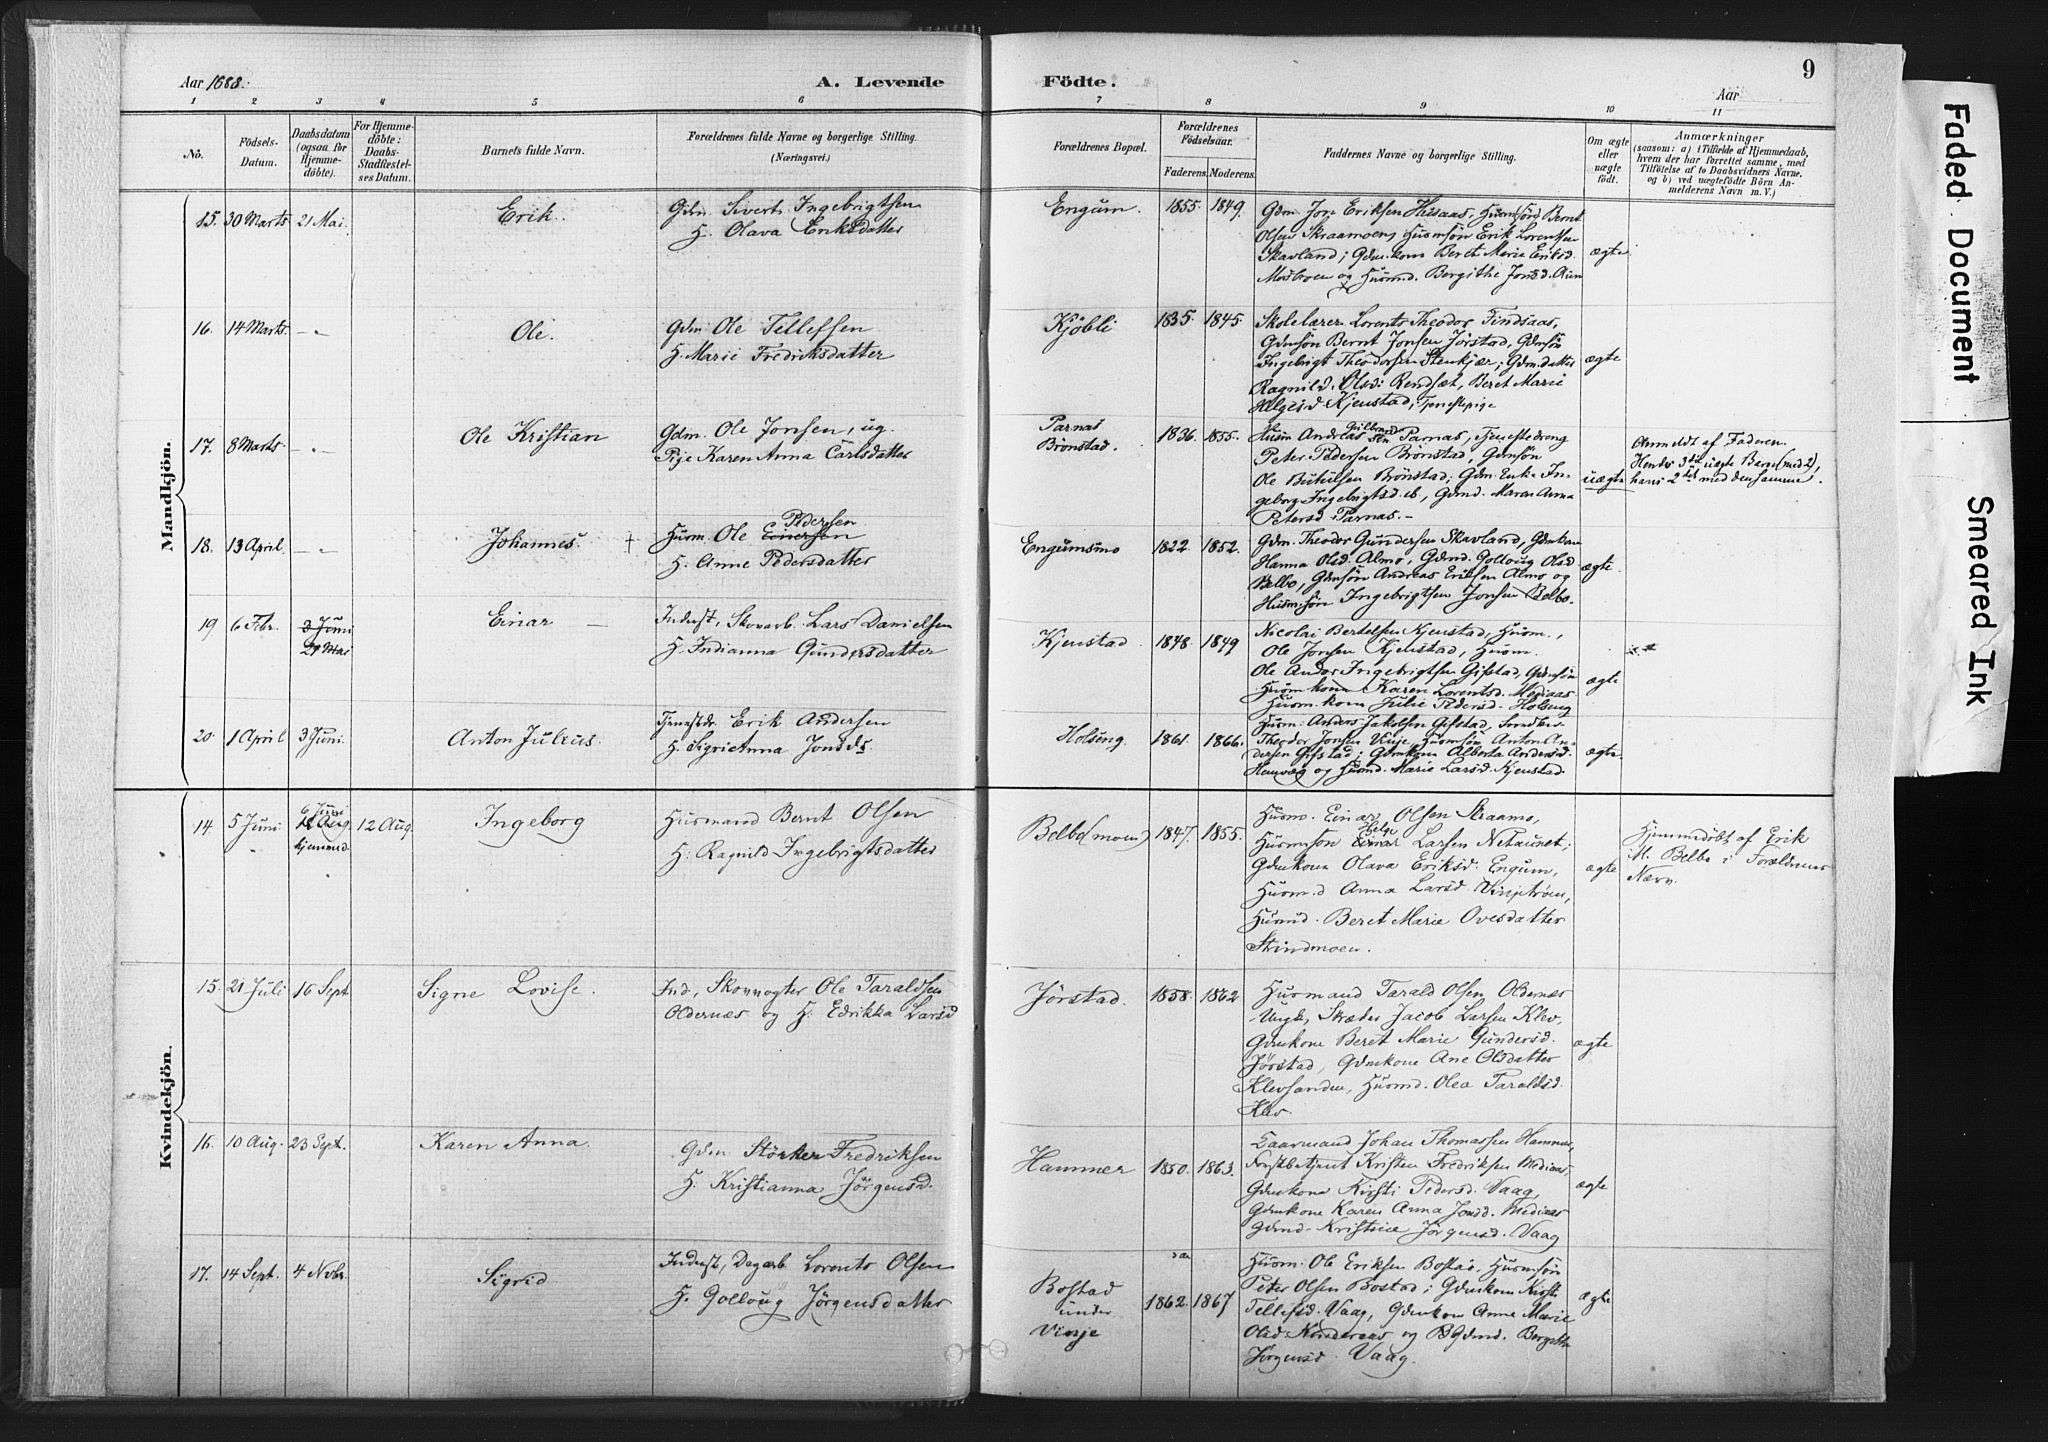 Aar 1888.
A. Levende
Födte.
9
Aar
1 2 3 4 5 6 7 8 9 10 11
No.
Födsels-
Datum.
Daabsdatum
(ogsaa for
Hjemme-
döbte).
For Hjemme-
döbte:
Daabs-
Stadfæstel-
ses Datum.
Barnets fulde Navn.
Forældrenes fulde Navne og borgerlige Stilling.
(Næringsvei.)
Forældrenes Bopæl.
Forældrenes
Födselsaar.
Faderens. Moderens.
Faddernes Navne og borgerlige Stilling.
Om ægte
eller
uægte
födt.
Anmærkninger
(saasom: a) i Tilfælde af Hjemmedaab,
hvem der har forrettet samme, med
Tilföielse af to Daabsvidners Navne.
og b) ved uægtefödte Börn An-
melderens Navn m. V.)
Mandkjön.
15. 30 Marts 21 Mai. Erik.
Gdm. Sivert Ingebrigtsen
H. Olava Eriksdatter
Engum. 1855. 1849.
Gdm. Jon Eriksen Husaas, Husmsön Bernt
Olsen Skraamoen, Husmsön Erik Lorentsen
Skavland; Gdm.kona Beret Maria Eriksd.
Mosbroen og Husmd. Bergithe Jonsd. Aun
ægte
16. 14 Marts. — „ — Ole.
Gdm. Ole Tellefsen
H. Marie Fredriksdatter
Kjöbli 1835. 1845.
Skolelærer Lorents Theodor Findsaas,
Gdmsön Bernt Jonsen Jörstad, Gdmsön
Ingebrigt Theodorsen Stenkjær; Gdm.datter
Ragnild Olsd. Rendsæt, Beret Marie
Helgesd Kjenstad, Tjenestepige
ægte
17. 8 Marts. — „ — Ole Kristian
Gdm. Ole Jonsen, ug.
Pige Karen Anna Carlsdatter
Parnas
Brönstad. 1836. 1855.
Husm Andreas Parnas, Tjenestedreng
Peter Pedersen Brönstad, Gdmsön
Ole Brönstad; Gdm. Enke In-
geborg Ingebrigtsd. ib, Gdmd. Maren Anna
Petersd Parnas. —
uægte
Anmeldt af Faderen.
Hendes 3die uægte Barn (med 2),
hans 2det med densamme.
18. 13 April. — „ — Johannes. †
Pedersen
Husm. Ole Einersen
H. Anne Pedersdatter
Engumsmo 1822. 1852.
Gdm. Theodor Gundersen Skavland, Gdmkone
Hanna Olsd. Almo, Gdmd. Golloug Olsd
Belbo, Gdmsön Andreas Eriksen Almo og
Husmsön Ingebrigtsen Jonsen Belbo.
ægte
19 6 Febr. 3 Juni
21 Mai Einar —
Inderst, Skovarb. Lars Danielsen
H. Indianna Gundersdatter
Kjenstad 1848. 1849
Nicolai Bertelsen Kjenstad, Husm.,
Ole Jonsen Kjenstad, Husm.
Ole Andor Ingebrigtsen Gifstad, Gdmsön
Husmkone Karen Lorentsd. Mediaas
Husm.kom Julie Pedersd. Holsing
ægte
20. 1 April 3 Juni. Anton Julius.
Tjenestdr. Erik Andersen
H. Sigri Anna Jonsd.
Holsing. 1861. 1866.
Husm. Anders Jakobsen Gifstad,
Theodor Jonsen Vinje, Husmsön Anton An-
dersen Gifstad; Gdmkona Alberta Andersd.
Homvæg og Husmd. Marie Larsd. Kjenstad.
ægte
Kvindekjön.
14 5 Juni 6 Juni
12 Aug
hjemmed. 12 Aug. Ingeborg
Husmand Bernt Olsen
H. Ragnild Ingebrigtsdatter
Belbo (moen) 1847. 1855.
Husm. Einar Olsen Skraamo,
Helge
Husmsön Einar Larsen Netaunet;
Gdmkona Olava Eriksd. Engum,
Husmd Anna Larsd.
Husmd. Beret Marie Ovesdatter
Strindmoen.
ægte
Hjemmedöbt af Erik
M. Belbo i Forældrenes
Nærv.
15. 21 Juli 16 Sept Signe Lovise.
Ind, Skovvogter Ole Taraldsen
Oldernæs og H. Edrikka Larsd
Jörstad. 1858. 1862
Husmand Tarald Olsen Oldernæs
Ungk, Skræder Jacob Larsen Klev,
Gdmkone Beret Marie Gundersd.
Jörstad, Gdmkone Ane Olsdatter
Klevsanden, Husmd. Olea Taraldsd.
Klev.
ægte
16. 10 Aug. 23 Sept. Karen Anna.
Gdm Störker Fredriksen
H. Kristianna Jörgensd.
Hammer 1850. 1863.
Gaarmand Johan Thomassen Hammer,
Forstbetjent Kristen Fredriksen Mediaas,
Gdmkona Kirsti Pedersd. Vaag,
Gdmkone Karen Anna Jonsd. Mediaas
Gdmd. Kristine Jörgensd. Vaag
ægte
17. 14 Sept. 4 Novbr. Sigrid
Inderst, Dagarb Lorents Olsen
H. Golloug Jörgensdatter
Bostad
under
Vinje 1862. 1867
Husm. Ole Eriksen Bostad, Husmsön
Peter Olsen Bostad; Gdmkone Kirsti
Tellefsd. Vaag, Gdmkone Anne Marie
Olsd. og Gdmd. Bergitte
Jörgensd. Vaag.
ægte
Faded Document
Smeared Ink